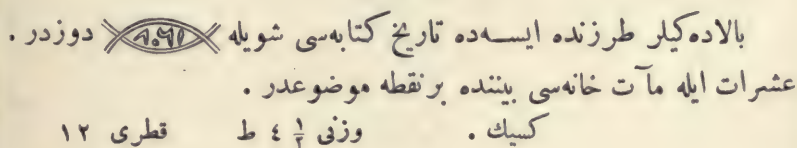 بالاده‌كيلر طرزنده ايسه‌ده تاريخ كتابه‌سى شويله دوزدر .
عشرات ايله مآت خانه‌سى بيننده بر نقطه موضوعدر .
كسيك . وزنى ½ ٤ ط قطرى ١٢